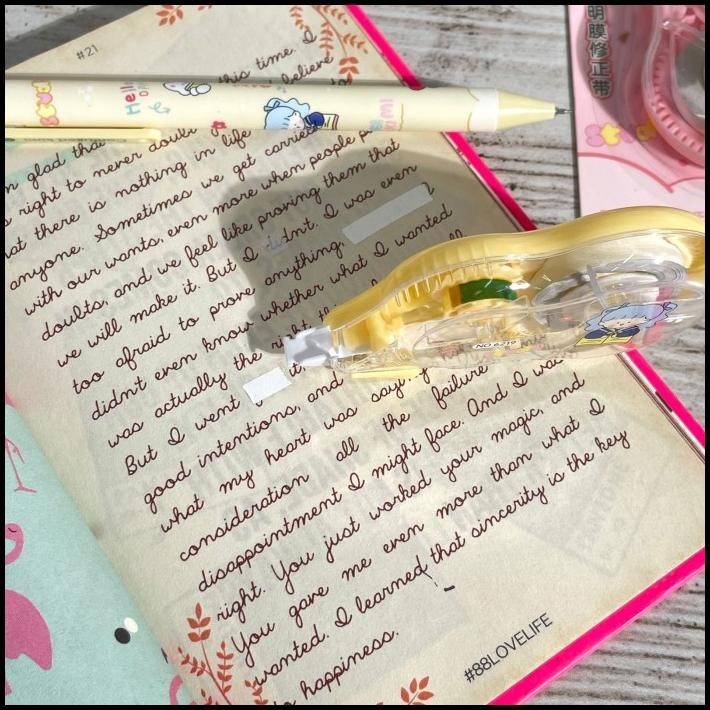 #21
this time, I
believe
glad that
right to never doubt
there is nothing in life
anyone. Sometimes we get
with our wants, even more when people
doubts, and we feel like proving them that
we will make it. But I didn't. I was even
too afraid to prove anything,
didn't even know whether what I wanted
was actually the right,
But I went
good intentions, and
what my heart was
consideration all the failure
disappointment I might face. And I was
right. You just worked your magic, and
You gave me even more than what I
wanted. I learned that sincerity is the key
happiness.
#88LOVELIFE
Hello
NO 6219
明膜修正带